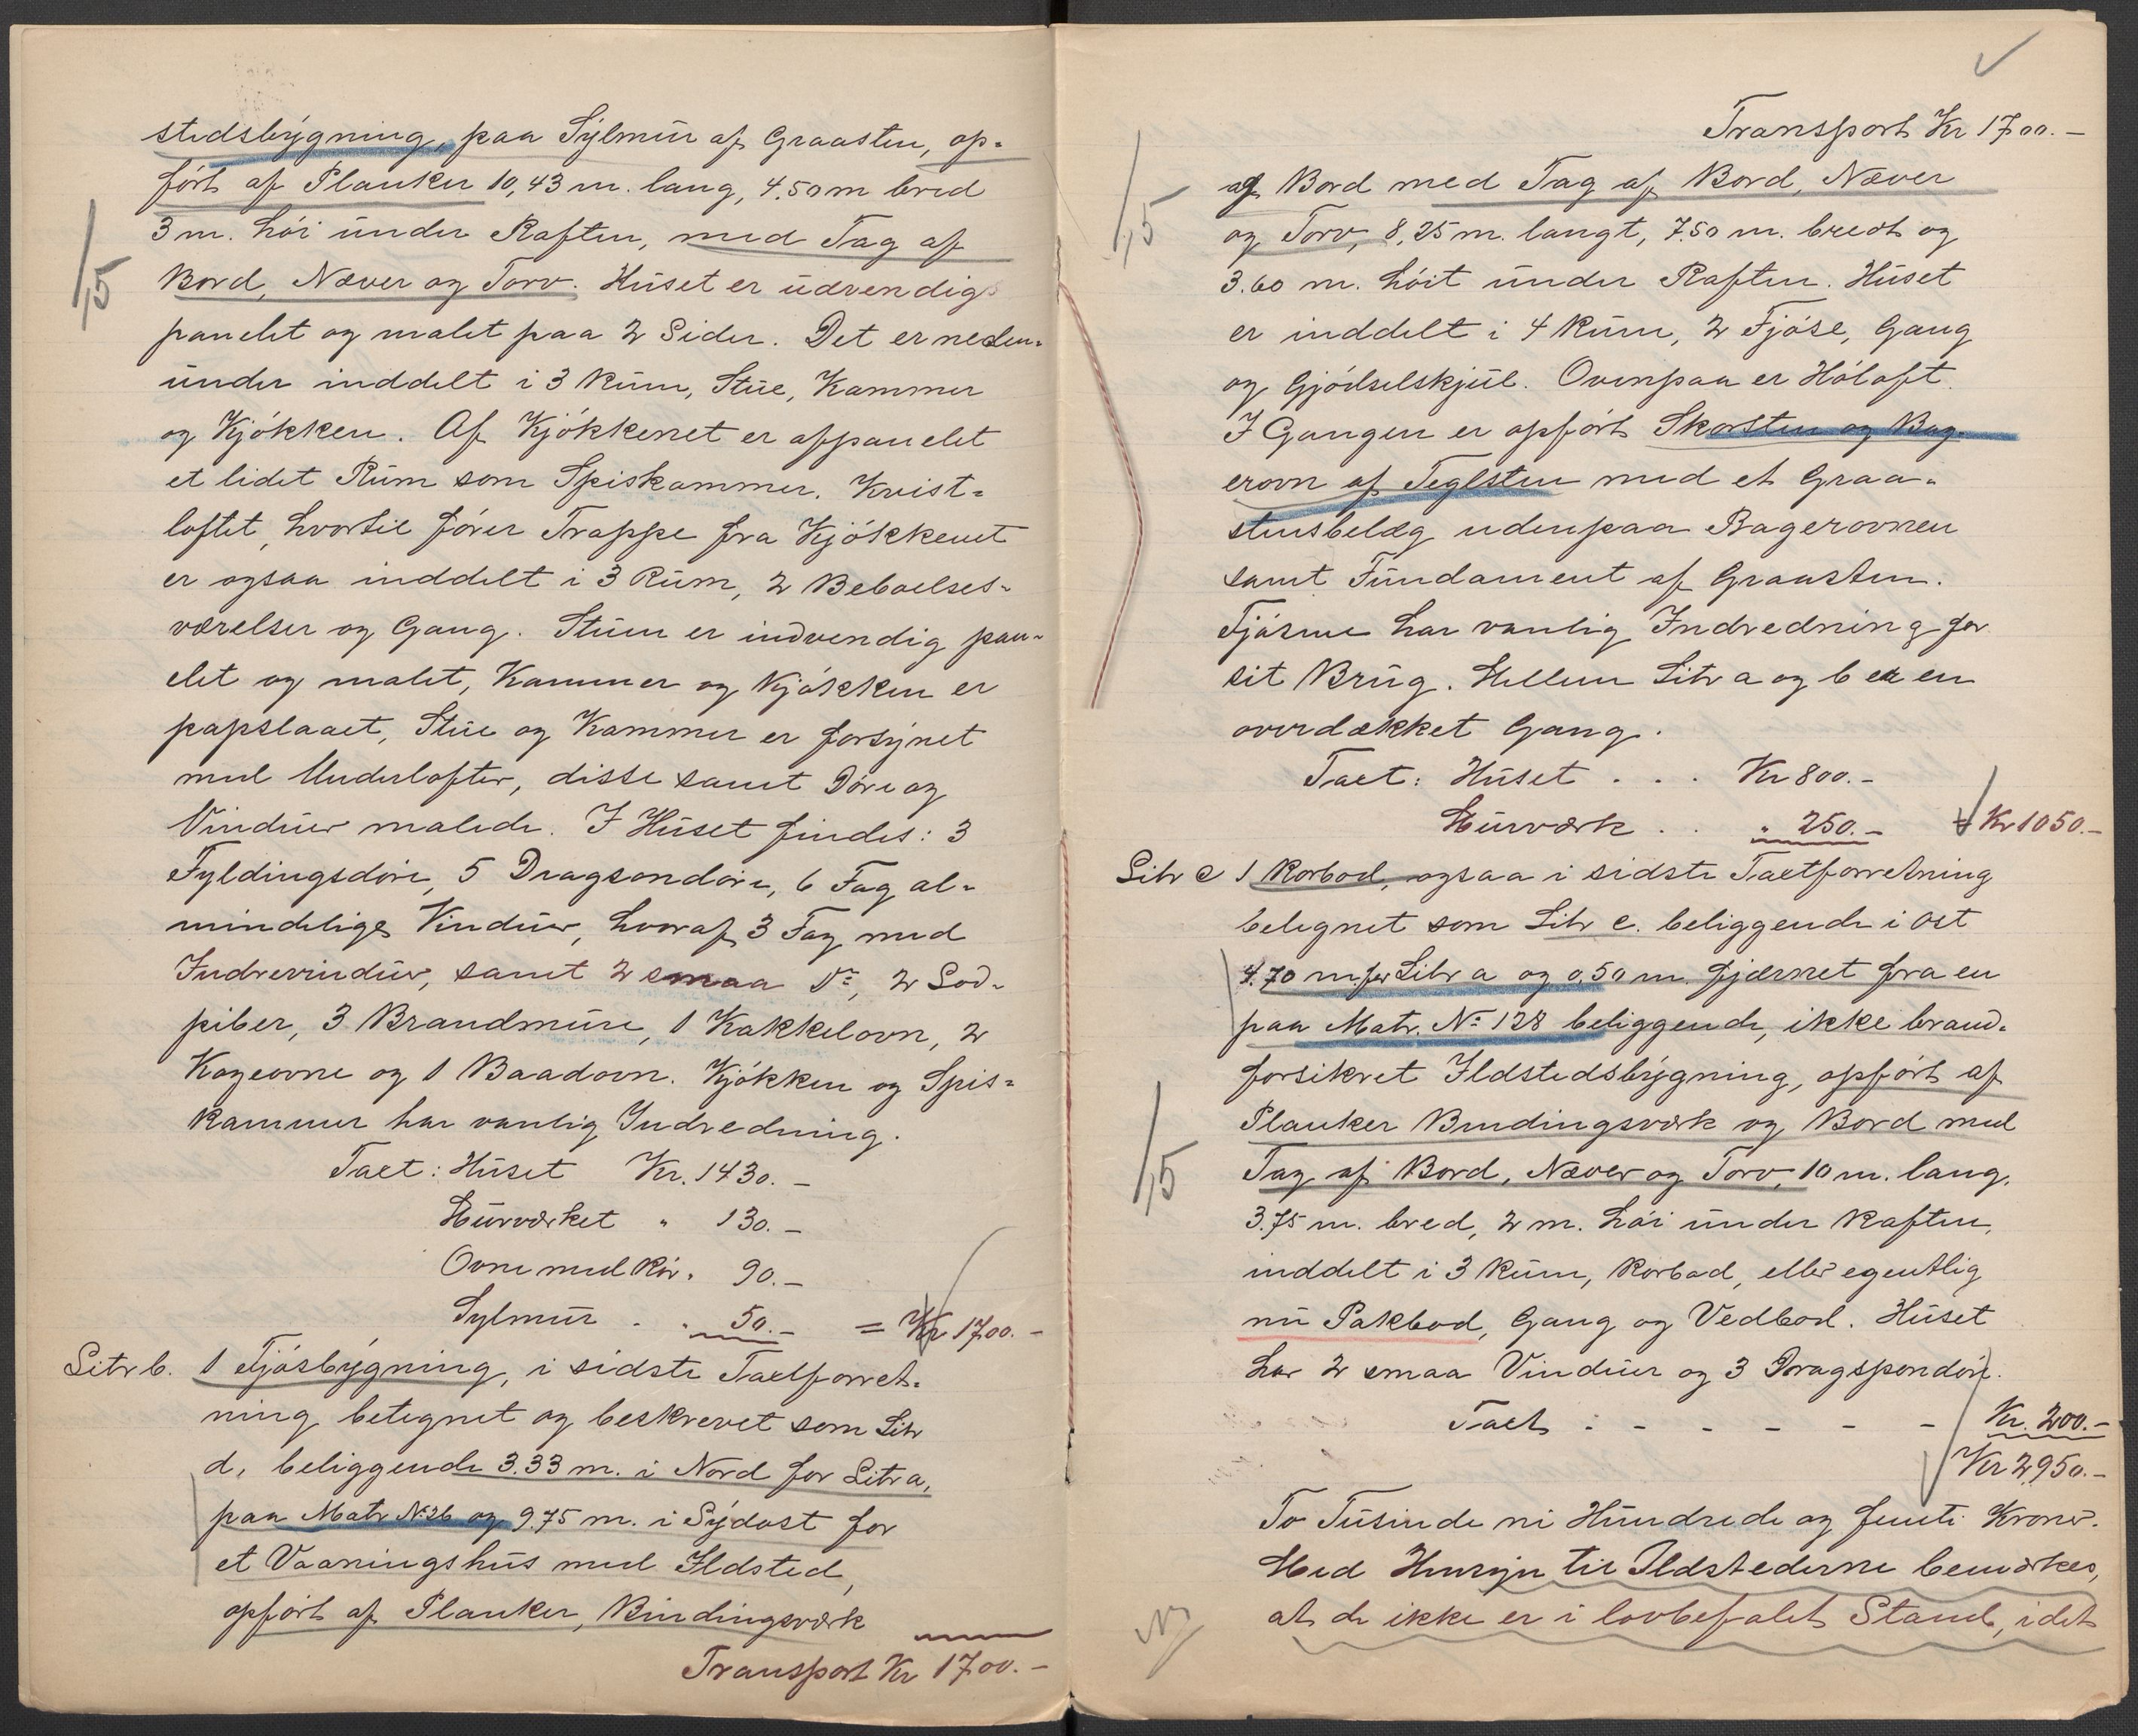 stedsbygning, paa Sylmur af Graasten, op-
ført af Planker 10,43 m. lang, 4.50 m bred
3 m. høi under Raften, med Tag af
Bord, Næver og Torv. Huset er udvendig
panelet og malet paa 2 Sider. Det er neden-
under inddelt i 3 Rum, Stue, Kammer
og Kjøkken. Af Kjøkkenet er afpanelet
et lidet Rum som Spiskammer. Kvist-
loftet, hvortil fører Trappe fra Kjøkkenet
er ogsaa inddelt i 3 Rum, 2 Beboelses-
værelser og Gang. Stuen er indvendig pan-
elet og malet, Kammer og Kjøkken er
papslaaet, Stue og Kammer er forsynet
med Underlofter, disse samt Døre og
Vinduer malede. I Huset findes: 3
Fyldingsdøre, 5 Dragsondøre, 6 Fag al-
mindelige Vinduer, hvoraf 3 Fag med
Indrevinduer, samt 2 smaa Do, 2 Sod-
piber, 3 Brandmure, 1 Kakkelovn, 2
Kogeovne og 1 Baadovn. Kjøkken og Spis-
kammer har vanlig Indredning.
Taxt: Huset Kr. 1430.-
Murværket " 130.-
Ovne med Rør " 90.-
Sylmur . " 50.- = Kr 1700.-
Litr b. 1 Fjøsbygning, i sidste Taxtforret-
ning betegnet og beskrevet som Litr
d, beliggende 3.33 m. i Nord for Litr a,
paa Matr No 26 og 9.75 m. i Sydost for
et Vaaningshus med Ildsted,
opført af Planker, Bindingsværk
Transport Kr 1700.-
1,5
Transport Kr 1700.-
af Bord med Tag af Bord, Næver
og Torv, 8,25 m. langt, 7.50 m. bredt og
3.60 m. høit under Raften. Huset
er inddelt i 4 Rum, 2 Fjøse, Gang
og Gjødselskjul. Ovenpaa er Høloft.
I Gangen er opført Skorsten og Bag-
erovn af Teglsten med et Graa-
stensbelæg udenpaa Bagerovnen
samt Fundament af Graasten.
Fjøsene har vanlig Indredning for
sit Brug. Mellem Litr a og b er en
overdækket Gang.
Taxt: Huset . . . Kr 800.-
Murværk . . " 250.- = Kr 1050.-
Litr c 1 Rorbod, ogsaa i sidste Taxtforretning
betegnet som Litr c. beliggende i Ost
4.70 m. for Litr a og 0,50 m. fjærnet fra en
paa Matr. No 128 beliggende, ikke brand-
forsikret Ildstedsbygning, opført af
Planker Bindingsværk og Bord med
Tag af Bord, Næver og Torv, 10 m. lang,
3.75 m. bred, 2 m. høi under Raften,
inddelt i 3 Rum, Rorbod, eller egentlig
nu Pakbod, Gang og Vedbod. Huset
har 2 smaa Vinduer og 3 Dragspondøre.
Taxt : - - - - - Kr. 200.-
Kr 2950.-
To Tusinde ni Hundrede og femti Kroner.
Med Hensyn til Ildstederne bemærkes,
at de ikke er i lovbefalet Stand, idet
1,5
1,5